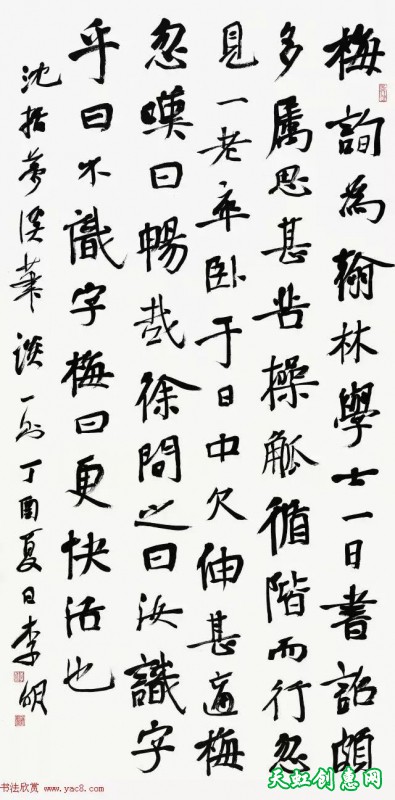 梅詢為翰林學士一日書詔頗
多屬思甚苦操觚循階而行忽
見一老卒卧于日中欠伸甚適梅
忽嘆曰暢哉徐問之曰汝識字
乎曰不識字梅曰更快活也
沈括夢溪筆談一則丁酉夏日李明
书法欣赏 www.yac8.com
天虹创惠网